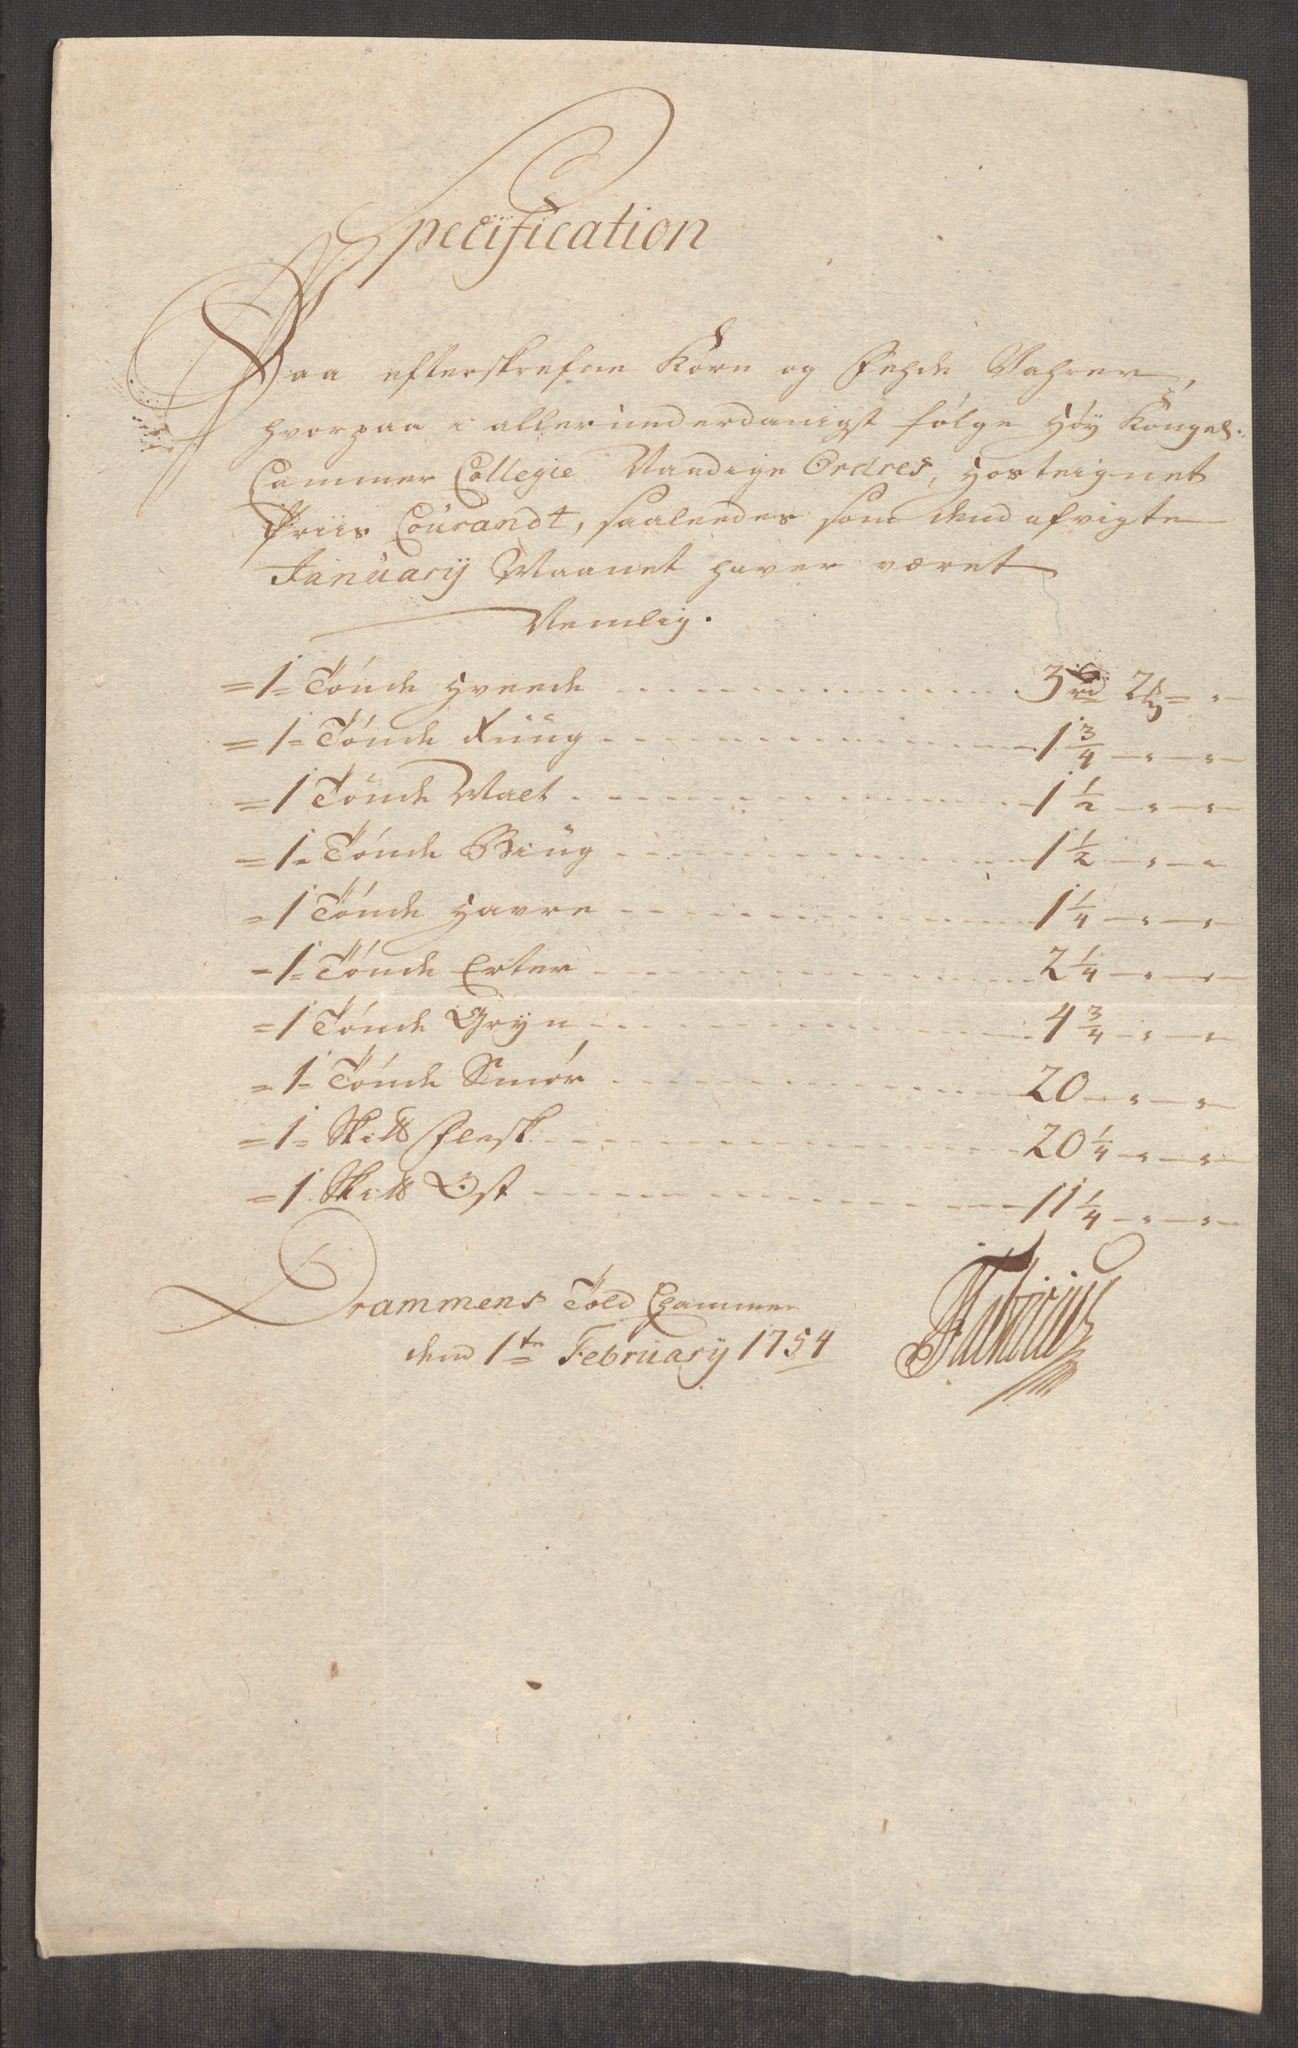 Specification
Paa efterskrefne Korn og Fehde Vahrer,
hvorpaa i allerunderdanigst følge Høÿ Kongel.
Cammer Collegie Naadige Ordres, hosteignet
Priis Courandt, saaleedes som dend afvigte
Januarÿ Maanet haver været
Nemlig.
=1= Tønde Hveede 3 rd 2
=1= Tønde Rüüg 1 3/4 " "
=1 Tønde Malt 1 1/2 " "
=1= Tønde Biüg 1 1/2 " "
=1 Tønde Havre 1 1/4 " "
=1= Tønde Erter 2 1/4 " "
=1 Tønde Grÿn 4 3/4 " "
=1= Tønde Smør 20 " "
=1= Sk: ℔ Flesk 20 1/4 " "
=1 Sk: ℔ Ost 11 1/4 " "
Drammens Told Cammer
dend 1te Februarÿ 1754 Fabricius